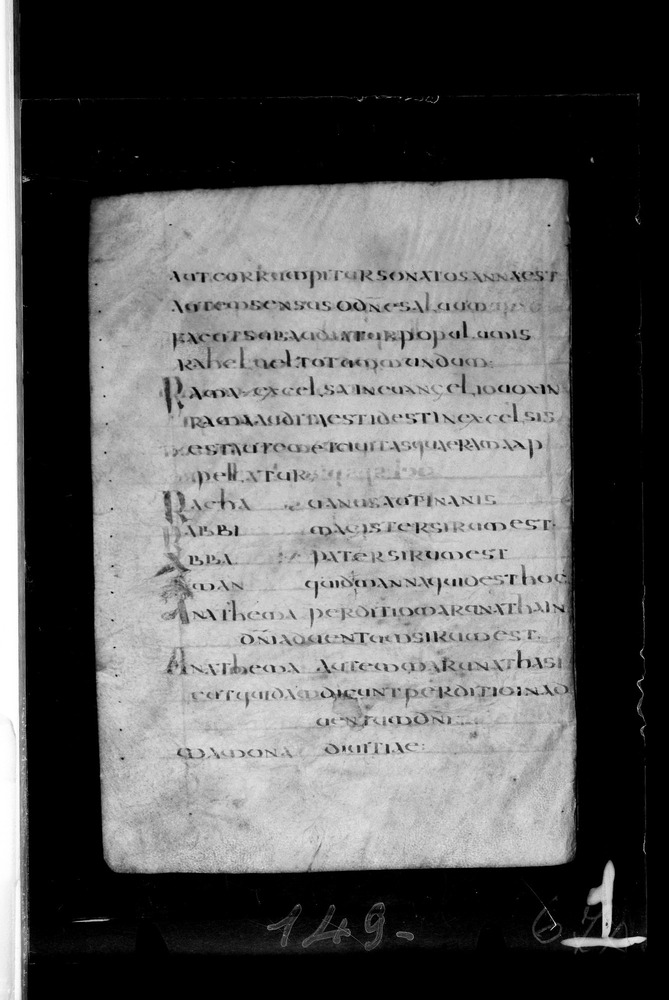 AUT CORRUMPITUR SONAT OSANNA EST
AUTEM SENSUS
FACOTSOBAUDITUR POPULUM IS
RAHEL UEL TOTUM MUNDUM:
RAMA EXCELSA IN EUANGELIO UOX IN
RAMA AUDITA EST ID EST IN EXCELSIS
EST AUTEM ET CIUITAS QUAE RAMA AP
PELLATUR
RACHA UANUS AUT INANIS
RABBI MAGISTER SIRUM EST.
ABBA PATER SIRUM EST
MAN QUID MANNA QUID EST HOC
ANATHEMA PERDITIO MARANATHA IN
DÑI ADUENTUM SIRUM EST.
ANATHEMA AUTEM MARANATHA SI
CUT QUIDAM DICUNT PERDITIO IN AD
UENTUM DÑI
MAMONA DIUITIAE:
149-
1